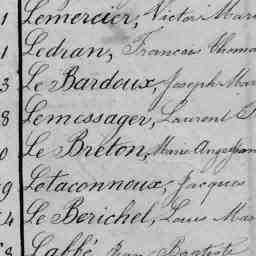 1 Lemercier, Victor Mari
1 Ledran, Francois Thoma
3 Le Bardoux, Joseph Mar
8 Lemessager, Laurent
0 Le Breton, Marie Ange Jean
9 Letaconnoux, Jacques
4 Le Berichel, Louis Mar
8 Labbé, Jean Baptiste